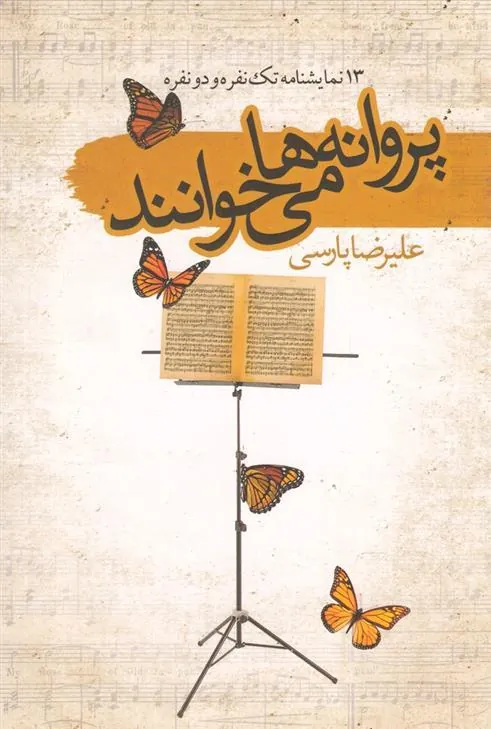 ۱۳ نمایشنامه تک‌نفره و دونفره
پروانه‌ها
می‌خوانند
علیرضا پارسی